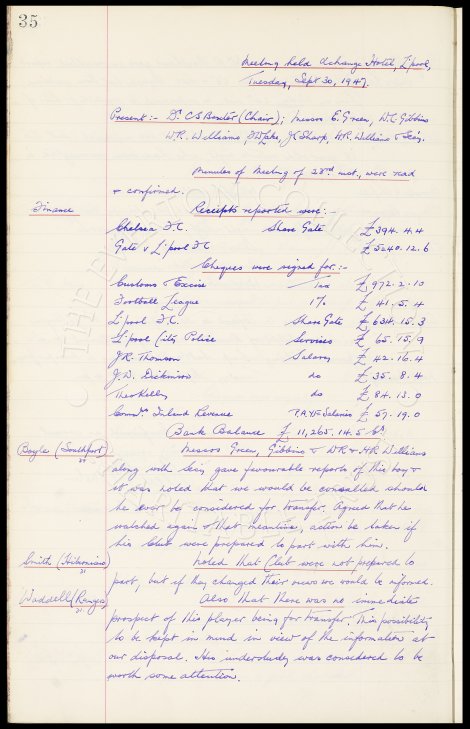 35
Meeting held Exchange Hotel, L'pool,
Tuesday, Sept 30, 1947.
Present:- Dr. C S Baxter (Chair); Messrs E. Green, W.C. Gibbins
W.R. Williams, J Sharp, H.R. Williams & Secy.
Minutes of Meeting of 23rd inst., were read
& confirmed.
Finance
Receipts reported were:-
Chelsea F.C. Share Gate £394.4.4
Gate v L'pool FC £5240.12.6
Cheques were signed for:-
Customs & Excise Tax £972.2.10
Football League 1% £41.5.4
L'pool F.C. Share Gate £634.15.3
L'pool City Police Services £65.15.9
J.R. Thomson Salary £42.16.4
J.D. Dickinson do £35.8.4
Theo Kelly do £84.13.0
Commrs Inland Revenue P.A.Y.E Salaries £59.19.0
Bank Balance £11,265.14.5
Boyle (Southport)
Messrs Green, Gibbins & WR & HR Williams
along with Secy gave favourable reports of this boy &
it was noted that we would be consulted should
he ever be considered for transfer. Agreed that he
watched again & that meantime, action be taken if
his Club were prepared to part with him.
Smith (Hibernians)
Noted that Club were not prepared to
part, but if they changed their views we would be informed.
Waddell (Rangers)
Also that there was no immediate
prospect of this player being for transfer. This possibility
to be kept in mind in view of the information at
our disposal. His understudy was considered to be
worth some attention.